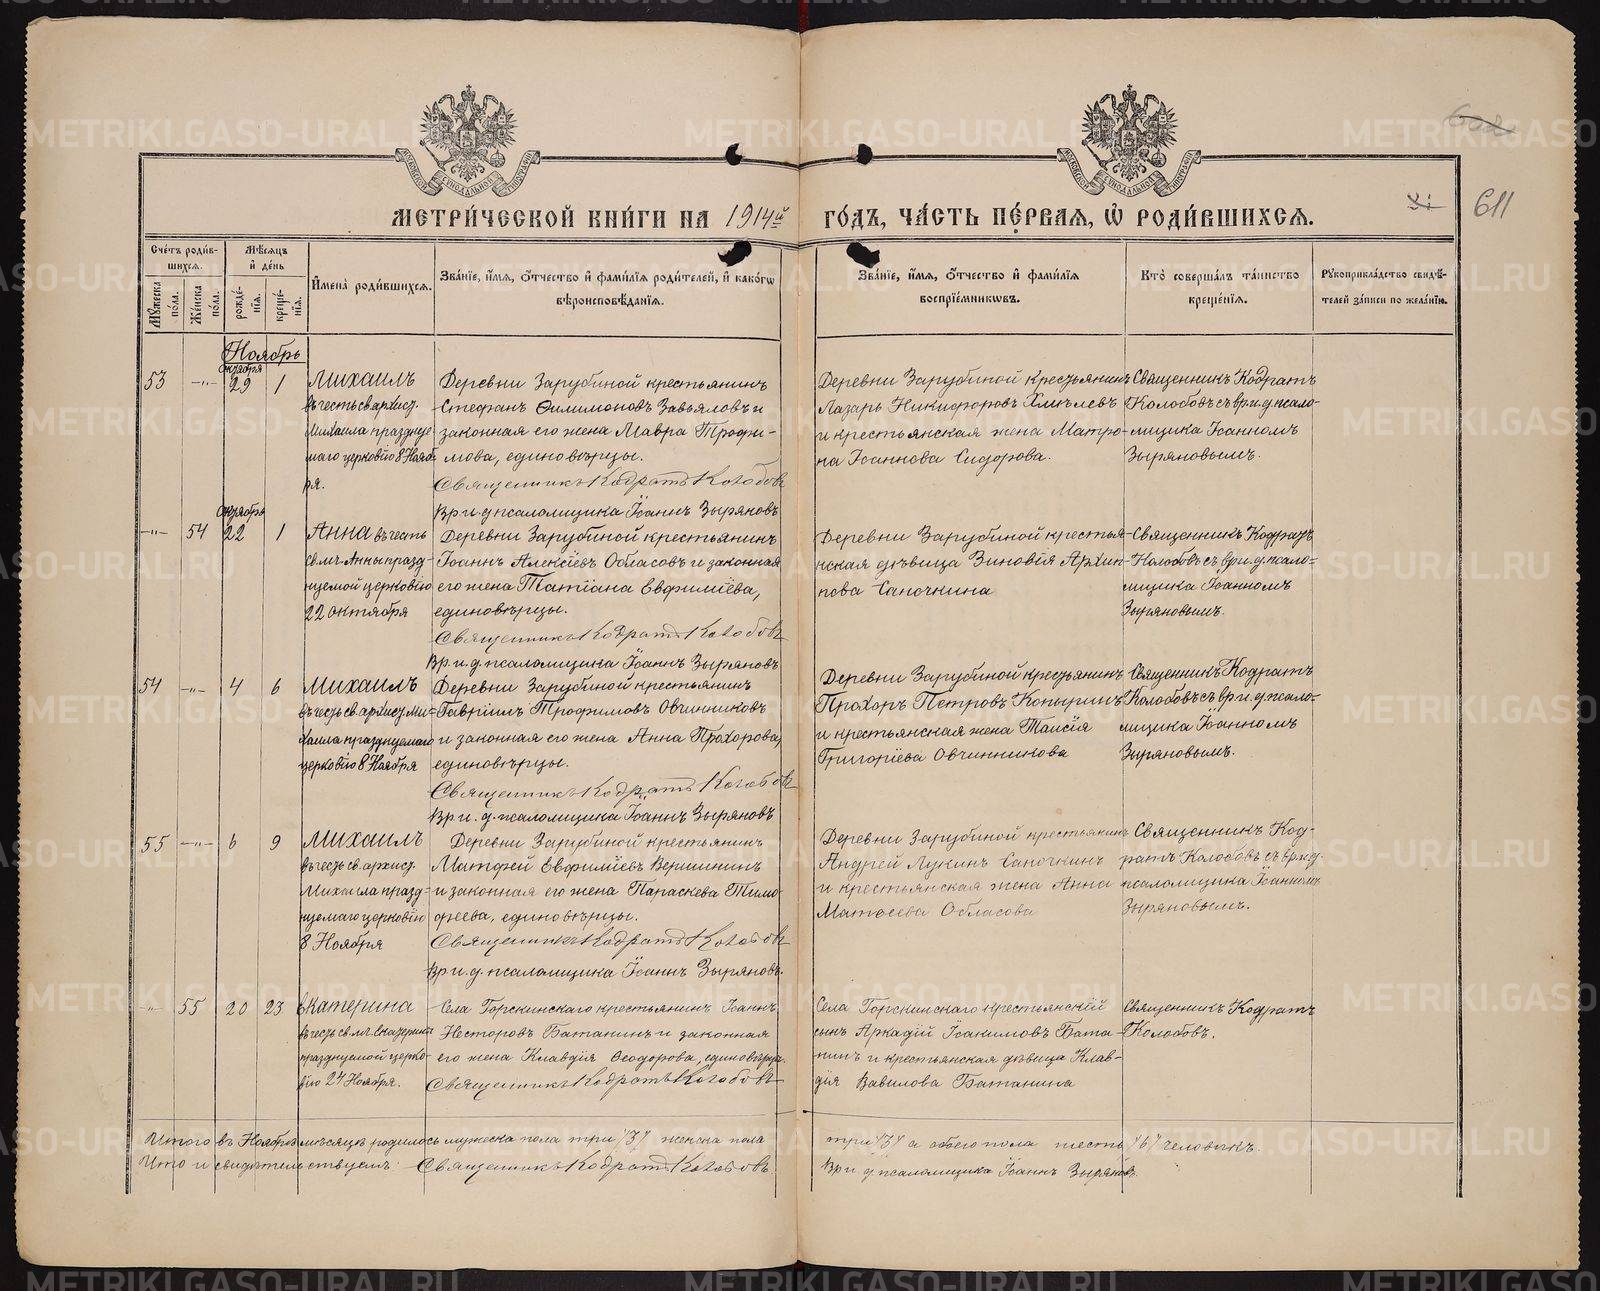 611
МЕТРИ́ЧЕСКОЙ КНИ́ГИ НА 1914й ГО́ДЪ, ЧА́СТЬ ПЕ́РВАѦ, Ѡ҆ РОДИ́ВШИХСѦ.
Сче́тъ роди́в-
шихсѧ.
Мꙋ́жеска по́ла.
Же́нска по́ла.
Мѣ́сѧцъ
и҆ де́нь
рожде́-
нїѧ.
креще́-
нїѧ.
И҆мена̀ роди́вшихсѧ.
Зва́нїе, и҆́мѧ, ѻ҆́тчество и҆ фами́лїѧ роди́телей, и҆ како́гѡ
вѣроисповѣ́данїѧ.
Зва́нїе, и҆́мѧ, ѻ҆́тчество и҆ фами́лїѧ
воспрїе́мникѡвъ.
Кто̀ соверша́лъ та́инство
креще́нїѧ.
Рꙋкоприкла́дство свидѣ́-
телей за́писи по жела́нїю.
Ноябрь
53 -"- Октября 29 1
Михаилъ
въ честь св. архист.
Михаила праздну
маго церковію 8 Нояб
ря.
Деревни Зарубиной крестьянинъ
Стефанъ Филимоновъ Завьяловъ и
законная его жена Мавра Трофи-
мова, единовѣрцы.
Священникъ Кодратъ Колобовъ
Вр. и. д. псаломщика Іоаннъ Зыряновъ
Деревни Зарубиной крестьянинъ
Лазарь Никифоровъ Хмѣлевъ
и крестьянская жена Матро-
на Іоаннова Сидорова.
Священникъ Кодратъ
Колобовъ съ вр. и. д. псало-
мщика Іоанномъ
Зыряновымъ.
-"- 54 Октября 22 1
Анна въ честь
св. мъ. Анны празд-
нуемой церковію
22 октября
Деревни Зарубиной крестьянинъ
Іоаннъ Алексіевъ Обласовъ и законная
его жена Татіана Евфиміева,
единовѣрцы.
Священникъ Кодратъ Колобовъ
Вр. и. д. псаломщика Іоаннъ Зыряновъ
Деревни Зарубиной крестья-
нская дѣвица Зиновія Архип-
пова Сапочкина
Священникъ Кодратъ
Колобовъ съ вр. и. д. псало-
мщика Іоанномъ
Зыряновымъ.
54 -"- 4 6
Михаилъ
въ честь св. архист. Ми-
хаила празднуемаго
церковію 8 Ноября
Деревни Зарубиной крестьянинъ
Гавріилъ Трофимовъ Овчинниковъ
и законная его жена Анна Прохорова,
единовѣрцы.
Священникъ Кодратъ Колобовъ
Вр. и. д. псаломщика Іоаннъ Зыряновъ
Деревни Зарубиной крестьянинъ
Прохоръ Петровъ Копыринъ
и крестьянская жена Таисія
Григоріева Овчинникова
Священникъ Кодратъ
Колобовъ съ вр. и. д. псало-
мщика Іоанномъ
Зыряновымъ.
55 -"- 6 9
Михаилъ
въ честь св. архист.
Михаила празд-
нуемаго церковію
8 Ноября
Деревни Зарубиной крестьянинъ
Матфей Евфиміевъ Вершининъ
и законная его жена Параскева Тимо-
феева, единовѣрцы.
Священникъ Кодратъ Колобовъ
Вр. и. д. псаломщика Іоаннъ Зыряновъ.
Деревни Зарубиной крестьянинъ
Андрей Лукинъ Сапочкинъ
и крестьянская жена Анна
Матѳеева Обласова
Священникъ Код-
ратъ Колобовъ съ вр. и. д.
псаломщика Іоанномъ
Зыряновымъ.
-"- 55 20 23
Екатерина
въ честь св. м. Екатерины
празднуемой церко-
вію 24 Ноября.
Села Горскинскаго крестьянинъ Іоаннъ
Несторовъ Батанинъ и законная
его жена Клавдія Ѳеодорова, единовѣрцы.
Священникъ Кодратъ Колобовъ
Села Горскинскаго крестьянскій
сынъ Аркадій Іоакимовъ Бата-
нинъ и крестьянская дѣвица Клав-
дія Вавилова Батанина
Священникъ Кодратъ
Колобовъ.
Итого въ Ноябрѣ мѣсяцѣ родилось мужеска пола три /3/ женска пола три /3/ а обоего пола шесть /6/ человѣкъ.
Что и свидѣтельствуемъ: Священникъ Кодратъ Колобовъ.
Вр. и. д. псаломщика Іоаннъ Зыряновъ.
METRIKI.GASO-URAL.RU